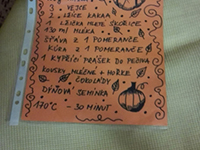 3 VEJCE
2 LŽÍCE KAKAA
1 LŽIČKA MLETÉ SKOŘICE
130 ml MLÉKA
ŠŤÁVA Z 1 POMERANČE
KŮRA Z 1 POMERANČE
1 KYPŘÍCÍ PRÁŠEK DO PEČIVA
KOUSKY MLÉČNÉ + HOŘKÉ
ČOKOLÁDY
DÝŇOVÁ SEMÍNKA
170°C - 30 MINUT